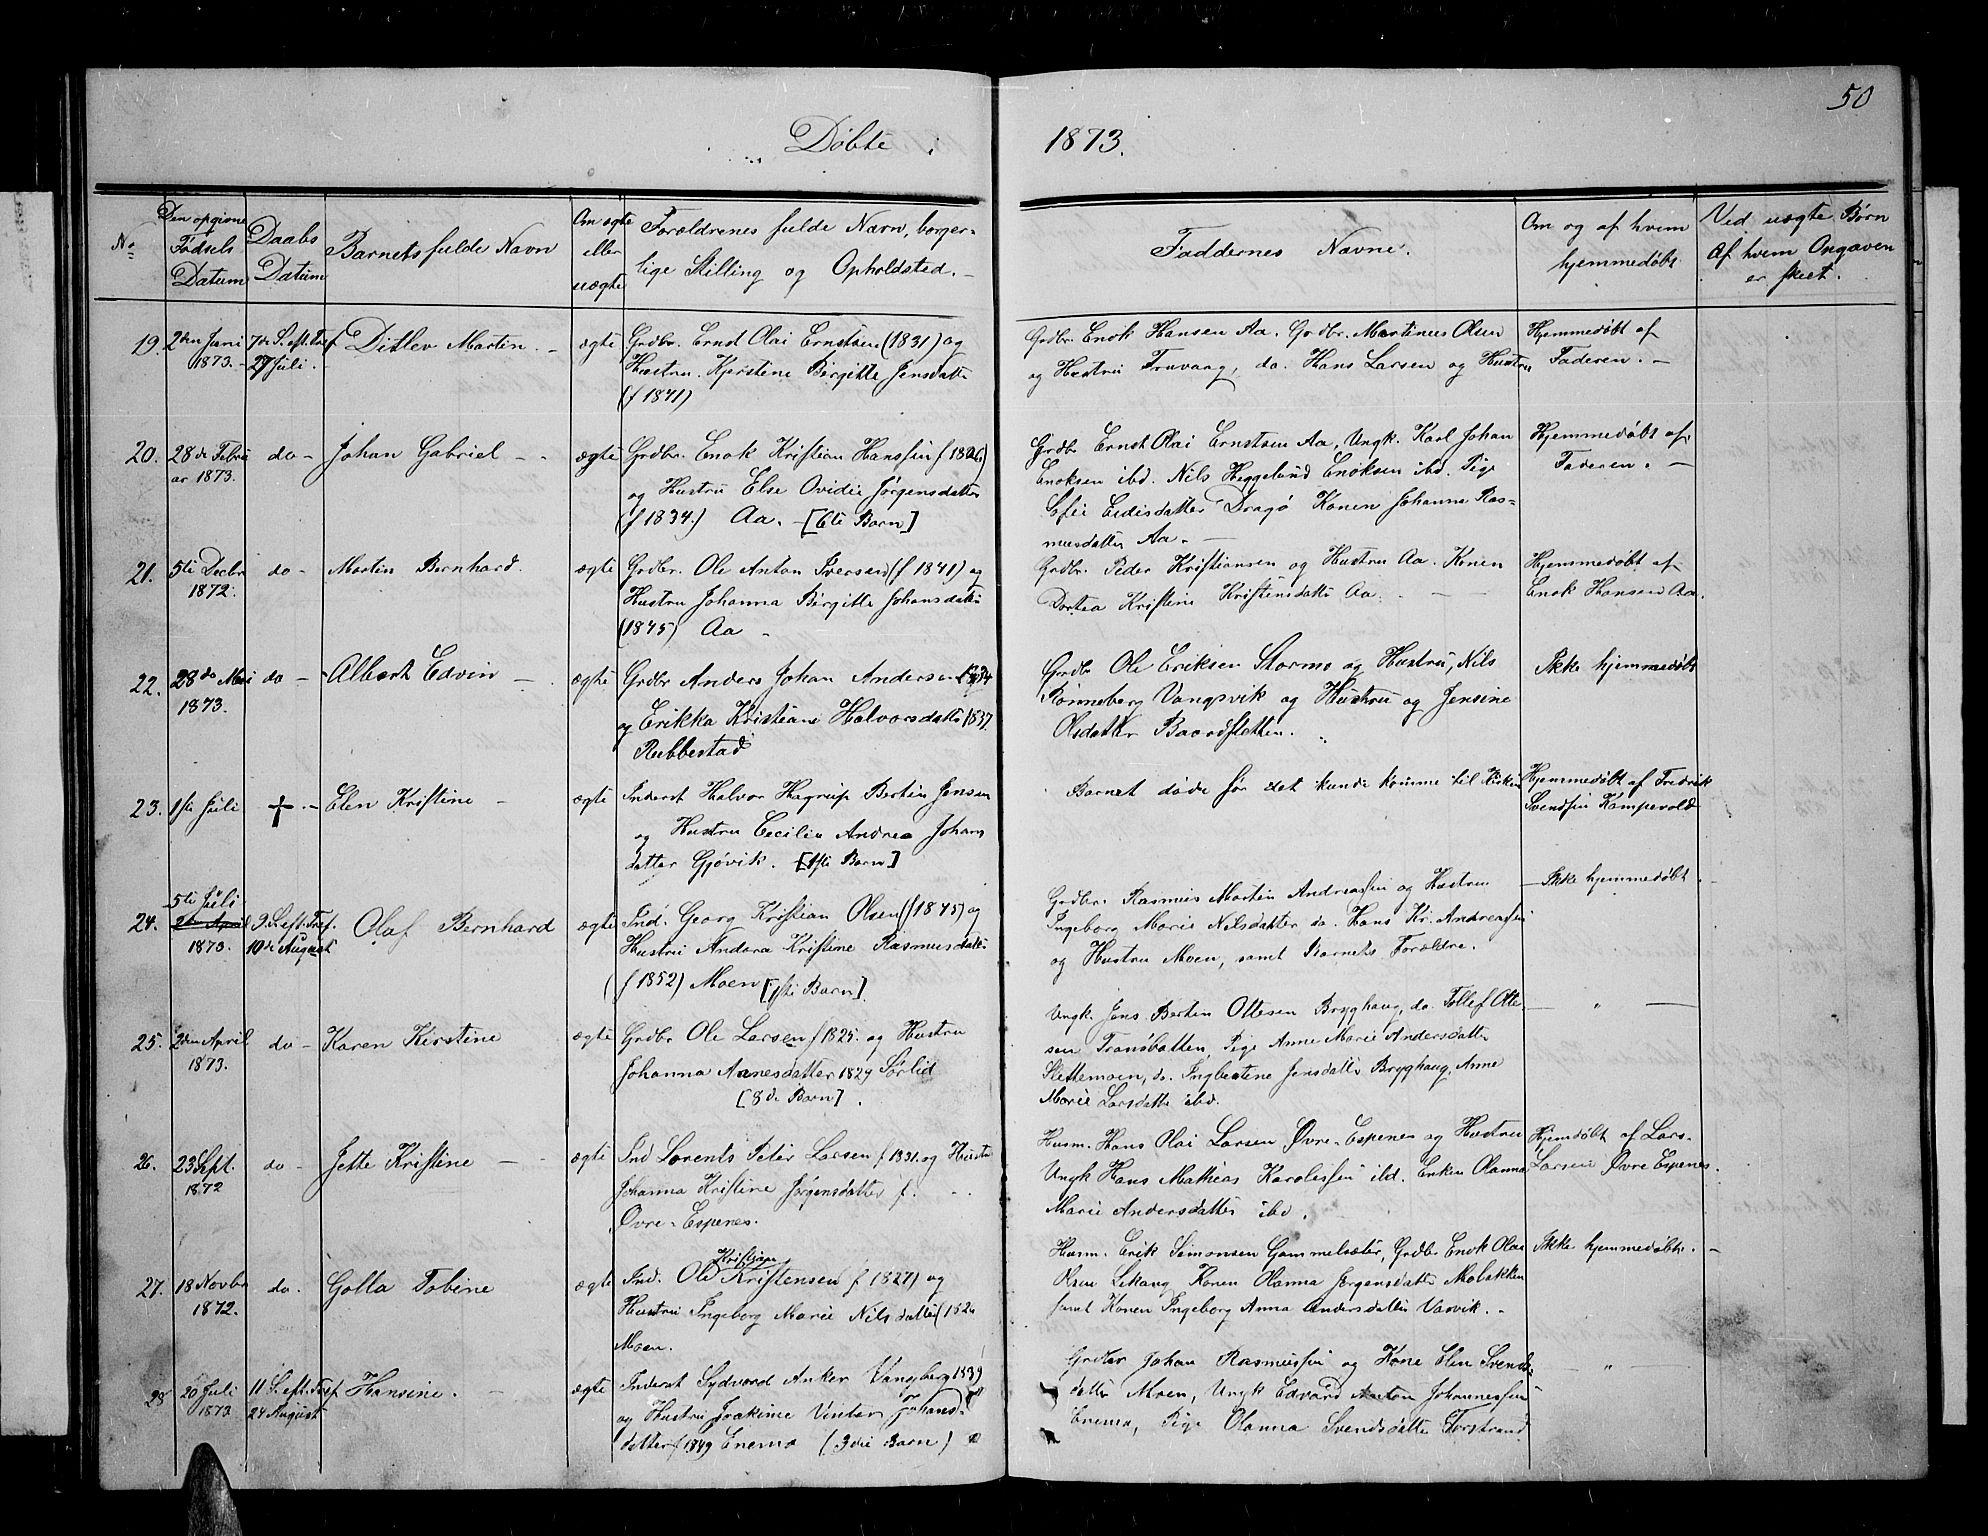 50
Døbte i 1873.
No
Den opgivne Fødsels Datum
Daabs Datum
Barnets fulde Navn
Om ægte eller uægte
Forældrenes fulde Navn, borger-
lige Stilling og Opholdsted.
Faddernes Navne.
Om og af hvem hjemmedøbt
Ved uægte Børn Af hvem Opgaven er skeet.
19. 2den Juni 1873. 7de S. eft. Tref. 27 Juli. Ditlev Martin. ægte
Grdbr. Ernst Olai Ernstsen (1831) og
Hustru Kjerstine Birgitte Jensdatt.
(f 1841)
Grdbr. Enok Hansen Aa. Grdbr. Martinus Olsen
og Hustru Travaag, do. Hans Larsen og Hustru
Hjemmedøbt af
Faderen. -
20. 28de Febru ar 1873. do - Johan Gabriel - ægte
Grdbr. Enok Kristian Hanssen f 1826)
og Hustru Else Ovidie Jørgensdatter
(f 1834.) Aa. - [6te Barn]
Grdbr Ernst Olai Ernstsen Aa, Ungk. Karl Johan
Enoksen ibd. Nils Heggelund Enoksen ibd. Pige
Sofie Eidisdatter Dragø Konen Johanna Ras=
musdatter Aa. -
Hjemmedøbt af
Faderen. -
21. 5te Decbr 1872. do - Martin Bernhard. ægte
Grdbr. Ole Anton Iversen (f 1841) og
Hustru Johanna Birgitte Johansdatter
(1845) Aa -
Grdbr. Peder Kristiansen og Hustru Aa. Konen
Dortea Kristine Kristensdatt. Aa.
Hjemmedøbt af
Enok Hansen Aa.
22. 28de Mai 1873. do - Albert Edvin - ægte
Grdbr Anders Johan Andersen 1834
og Erikka Kristiane Halvorsdatter 1837
Rubbestad
Grdbr Ole Eriksen Stormo og Hustru, Nils
Rønneberg Vangsvik og Hustru og Jensine
Olsdatter Baardsletten.
Ikke hjemmedøbt
23. 1ste Juli † - Elen Kristine - ægte
Inderst Halvor Hagrup Bertin Jensen
og Hustru Cecilie Andrea Johans
datter Gjøvik. [1ste Barn]
Barnet døde før det kunde komme til Kirken
Hjemmedøbt af Fredrik
Svendsen Kampevold
24. 5te Juli 2den April 1873. 9.S. eft. Tref. 10de August Olaf Bernhard ægte
Ind. Georg Kristian Olsen (f 1845) og
Hustru Andora Kristine Rasmusdatter
(f 1852) Moen [1ste Barn].
Grdbr. Rasmus Martin Andreassen og Hustru
Ingeborg Marie Nilsdatter do. Hans Kr. Andreassen
og Hustru Moen, samt Barnets Forældre.
- Ikke hjemmedøbt
25. 2den April 1873. do - Karen Kirstine ægte
Grdbr Ole Larsen f 1825. og Hustru
Johanna Aanesdatter 1829 Sørlid
[8de Barn].
Ungk. Jens Bertin Ottesen Brygghaug, do. Tollef Otte-
sen Transbatten, Pige Anne Marie Andersdatter
Slettemoen, do. Ingbertine Jensdatter Brygghaug, Anne
Marie Larsdatter ibd.
- " -
26. 23 Sept. 1872 do - Jette Kristine - ægte
Ind Lorents Peter Larsen f 1831. og Hustr
Johanna Kristine Jørgensdatter f.
Øvre-Espenes.
Husm. Hans Olai Larsen Øvre-Espenes og Hustru
Ungk Hans Mathias Karolissen ibd. Enken Olanna
Marie Andersdatter ibd.
Hjemdøbt af Lars
Larsen Øvre Espenes.
27. 18 Novbr 1872. do. Golla Tobine ægte
Kristian
Ind. Ole Kristensen f 1827) og
Hustru Ingeborg Marie Nilsdatter (182
Moen.
Husm. Erik Simonsen Gammelsæter, Grdbr Enok Olai
Olsen Lekang Konen Olanna Jørgensdatter Molakken
samt Konen Ingeborg Anna Andersdatter Varvik. -
Ikke hjemmedøbt. -
28 20 Juli 1873 11 S. eft. Tref. 24 August Hansine. - ægte
Inderst Sydvard Anker Vangberg 1839
og Hustru Joakime Vinter Johans-
datter f 1849 Enemo (3die Barn)
Grdbr Johan Rasmussen og Kone Elen Svends-
datter Moen, Ungk Edvard Anton Johannessen
Enemo, Pige Olanna Svendsdatter Forstrand
- " -